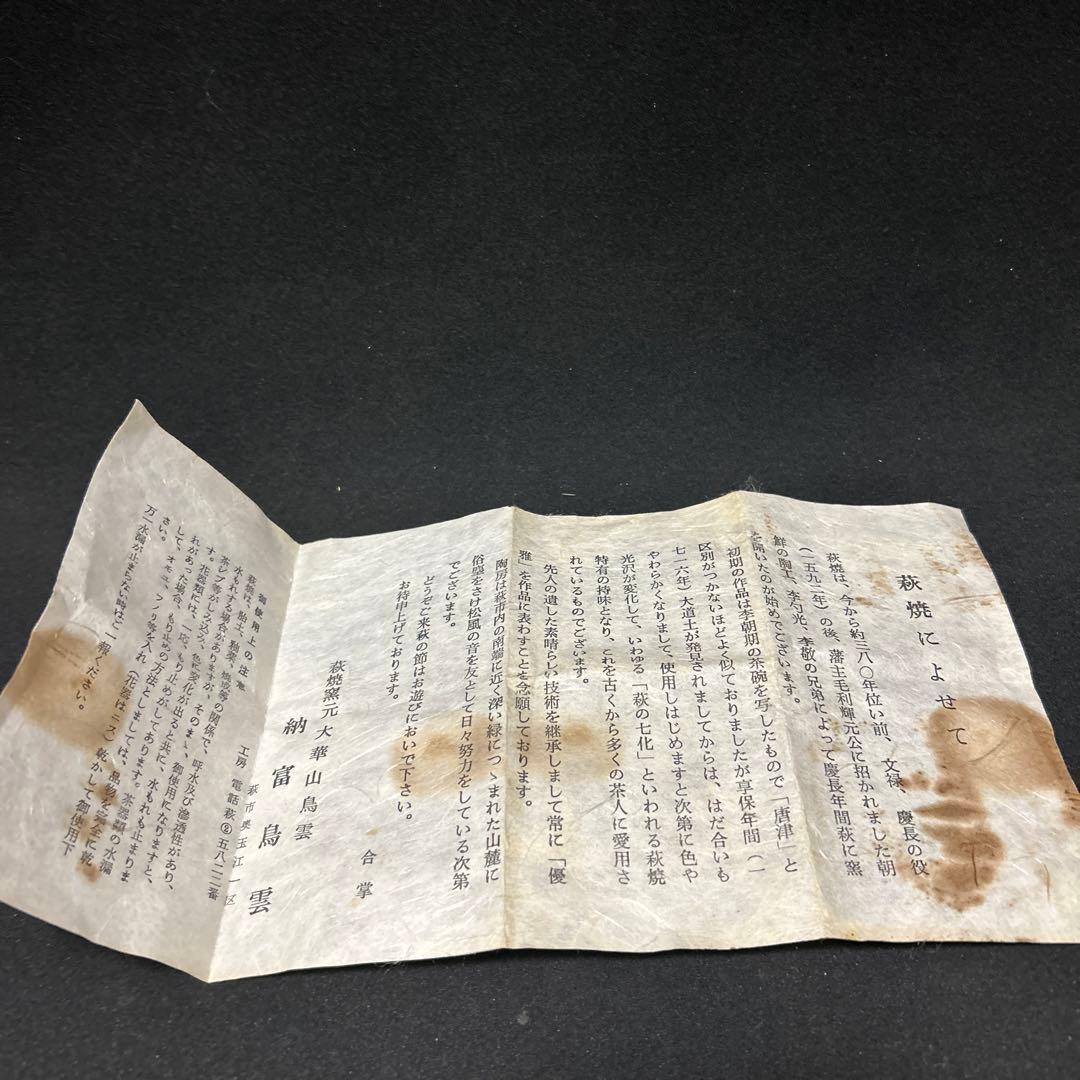 萩焼によせて
萩焼は、今から約三八〇年位い前、文禄、慶長の役
(一五九二年)の後、藩主毛利輝元公に招かれました朝
鮮の陶工、李勺光、李敬の兄弟によって慶長年間萩に窯
を開いたのが始めでございます。
初期の作品は李朝期の茶碗を写したもので「唐津」と
区別がつかないほどよく似ておりましたが享保年間(一
七一六年)大道土が発見されましてからは、はだ合いも
やわらかくなりまして、使用しはじめますと次第に色や
光沢が変化して、いわゆる「萩の七化」といわれる萩焼
特有の持味となり、これを古くから多くの茶人に愛用さ
れているものでございます。
先人の遺した素晴らしい技術を継承しまして常に「優
雅」を作品に表わすことを念願しております。
陶房は萩市内の南端に近く深い緑につゝまれた山麓に
俗塵をさけ松風の音を友として日々努力をしている次第
でございます。
どうぞご来萩の節はお遊びにおいで下さい。
お待申上げております。
合掌
萩焼窯元 大華山鳥雲
納富鳥雲
萩市奥玉江一区
工房 電話萩②五八二二番
御使用上の注意
萩焼は、胎土、釉薬、焼成等の関係で、呼水及び滲透性があり、
水もれする場合がありますが、そのまゝ御使用になりますと、
茶シブ等がしみ込み、色に変化が出ると共に、水もれも止まりま
す。花器類には、一応、もり止めがしてあります。茶器類の水漏
れがあった場合、もり止めの方法としましては、
して、オモユ、フノリ等を入れ(花器はニス)乾かして御使用下
さい。
万一水漏が止まらない時はご一報ください。